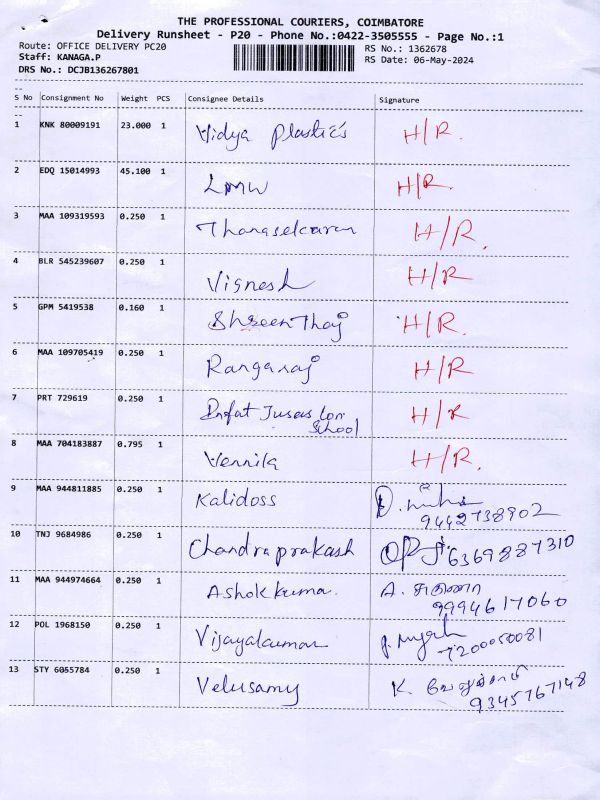 THE PROFESSIONAL COURIERS, COIMBATORE
Delivery Runsheet - P20 - Phone No.:0422-3505555 - Page No.:1
Route: OFFICE DELIVERY PC20 RS No.: 1362678
Staff: KANAGA.P RS Date: 06-May-2024
DRS No.: DCJB136267801
S No Consignment No Weight PCS Consignee Details Signature
1 KNK 80009191 23.000 1 Vidya Plastics H/R.
2 EDQ 15014993 45.100 1 LMW H/R.
3 MAA 109319593 0.250 1 Thanaselcaran H/R.
4 BLR 545239607 0.250 1 Vignesh H/R
5 GPM 5419538 0.160 1 Shreen Thaj H/R.
6 MAA 109705419 0.250 1 Rangaraj H/R
7 PRT 729619 0.250 1 Infat Jusas H/R
School
8 MAA 704183887 0.795 1 Vennila H/R.
9 MAA 944811885 0.250 1 Kalidoss
9442738902
10 TNJ 9684986 0.250 1 Chandraprakash 6369887310
11 MAA 944974664 0.250 1 Ashokkuma. A.
9994617060
12 POL 1968150 0.250 1 Vijayakumar
7200050081
13 STY 6055784 0.250 1 Velusamy K.
9345767148